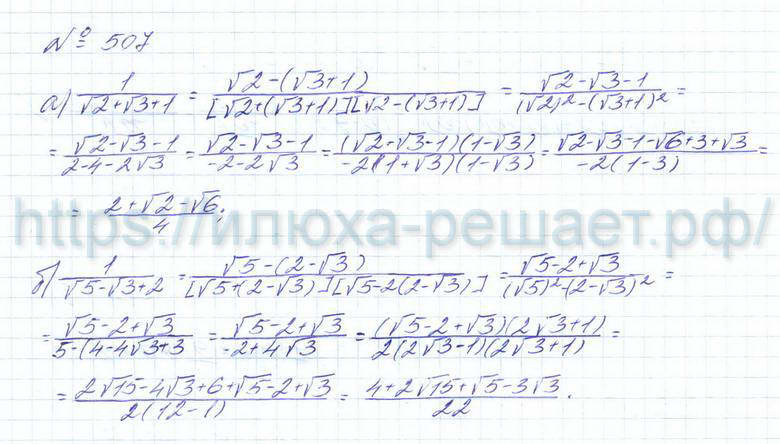 № 507
а) 1/(√2+√3+1) = (√2-(√3+1))/([√2+(√3+1)][√2-(√3+1)]) = (√2-√3-1)/((√2)²-(√3+1)²) =
= (√2-√3-1)/(2-4-2√3) = (√2-√3-1)/(-2-2√3) = ((√2+√3-1)(1-√3))/(-2(1+√3)(1-√3)) = (√2-√3-1-√6+3+√3)/(-2(1-3)) =
= (2+√2-√6)/4;
https://илюха-решает.рф/
б) 1/(√5-√3+2) = (√5-(2-√3))/([√5+(2-√3)][√5-2(2-√3)]) = (√5-2+√3)/((√5)²-(2-√3)²) =
= (√5-2+√3)/(5-(4-4√3+3) = (√5-2+√3)/(-2+4√3) = ((√5-2+√3)(2√3+1))/(2(2√3-1)(2√3+1)) =
= (2√15-4√3+6+√5-2+√3)/(2(12-1)) = (4+2√15+√5-3√3)/22.